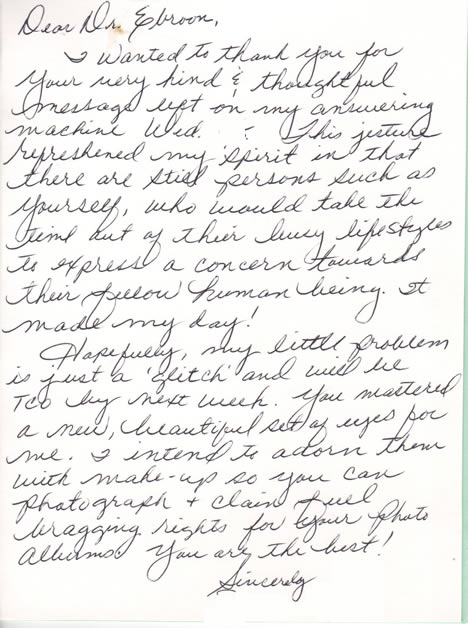 Dear Dr. Ebroon,
I wanted to thank you for
your very kind & thoughtful
message left on my answering
machine Wed. This jesture
refreshened my spirit in that
there are still persons such as
yourself, who would take the
time out of their busy lifestyles
to express a concern towards
their fellow human being. It
made my day!
Hopefully, my little problem
is just a 'glitch' and will be
TCO by next week. You mastered
a new, beautiful set of eyes for
me. I intend to adorn them
with make-up so you can
photograph + claim full
bragging rights for your photo
albums. You are the best!
Sincerely